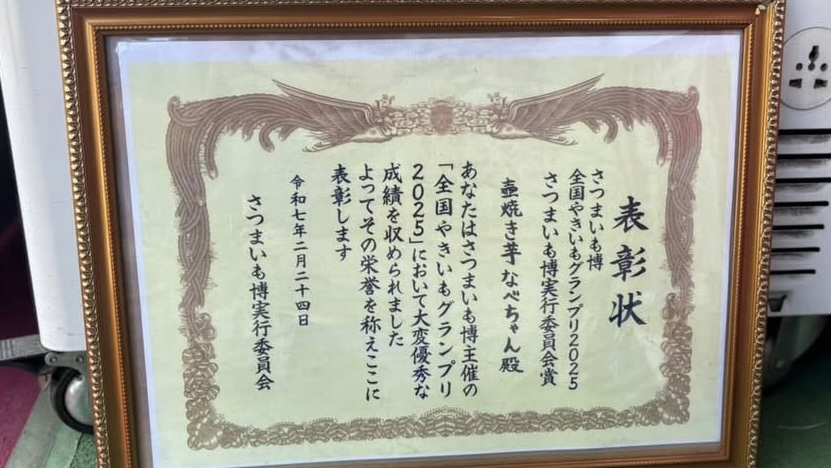 表彰状
さつまいも博
全国やきいもグランプリ2025
さつまいも博実行委員会賞
壺焼き芋 なべちゃん 殿
あなたはさつまいも博主催の
「全国やきいもグランプリ
2025」において大変優秀な
成績を収められました
よってその栄誉を称えここに
表彰します
令和七年二月二十四日
さつまいも博実行委員会